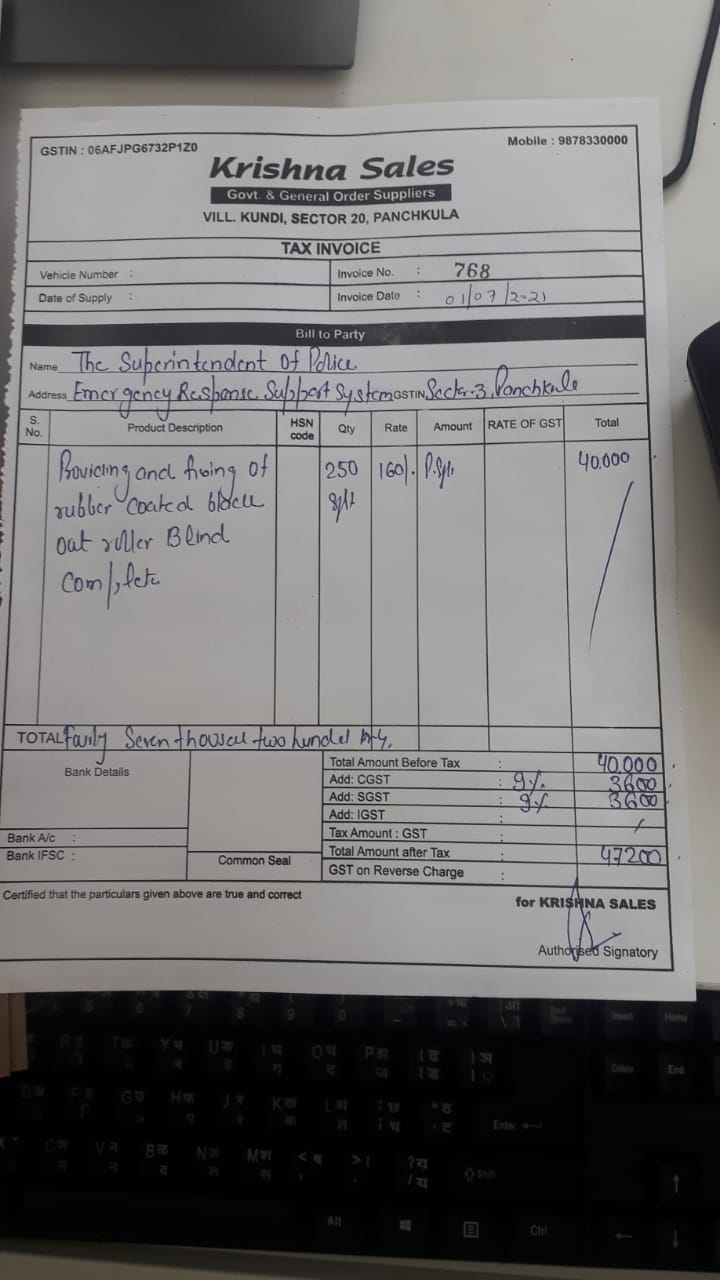 GSTIN : 06AFJPG6732P1Z0 Mobile : 9878330000
Krishna Sales
Govt. & General Order Suppliers
VILL. KUNDI, SECTOR 20, PANCHKULA
TAX INVOICE
Vehicle Number : Invoice No. : 768
Date of Supply : Invoice Date : 01/07/2021
Bill to Party
Name The Superintendent Of Police
Address Emergency Response Support System GSTIN Sector-3, Panchkula
S. No. Product Description HSN code Qty Rate Amount RATE OF GST Total
Providing and fixing of 250 160/. P.Sft. 40,000
rubber coated black sft
out roller Blind
Complete
TOTAL Fourty Seven thousand two hundred only.
Bank Details Total Amount Before Tax : 40,000
Add: CGST : 9% 3600
Add: SGST : 9% 3600
Add: IGST :
Bank A/c : Tax Amount : GST :
Bank IFSC : Common Seal Total Amount after Tax : 47200
GST on Reverse Charge :
Certified that the particulars given above are true and correct
for KRISHNA SALES
Authorised Signatory
5 6 7 8 9 0
Insert Home
R T Y U I O P
Delete End
G H J K L
Enter
C V B N M
Shift
Alt Ctrl